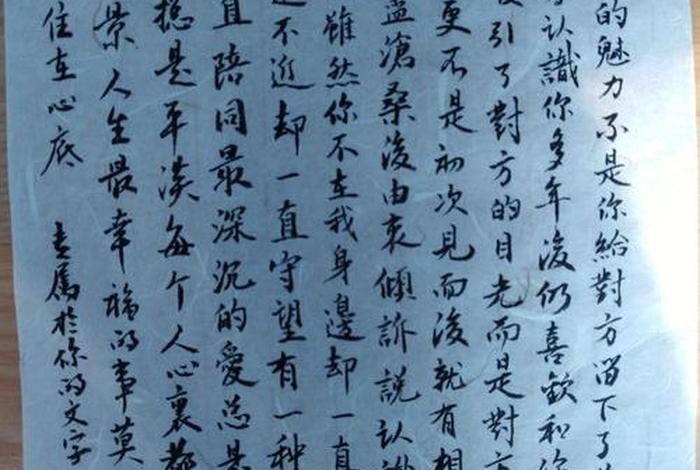 的魅力不是你給對方留下了
認識你多年後仍喜欽和你
引了對方的目光而是對方
更不是初次見而後就有相
盡滄桑後由衷傾訴説认識
雖然你不在我身邊却一直
不近却一直守望有一种
直陪同最深沉的愛总是
揔是平淡每个人心裏都
景人生最幸福的事莫
住在心底 专属於你的文字